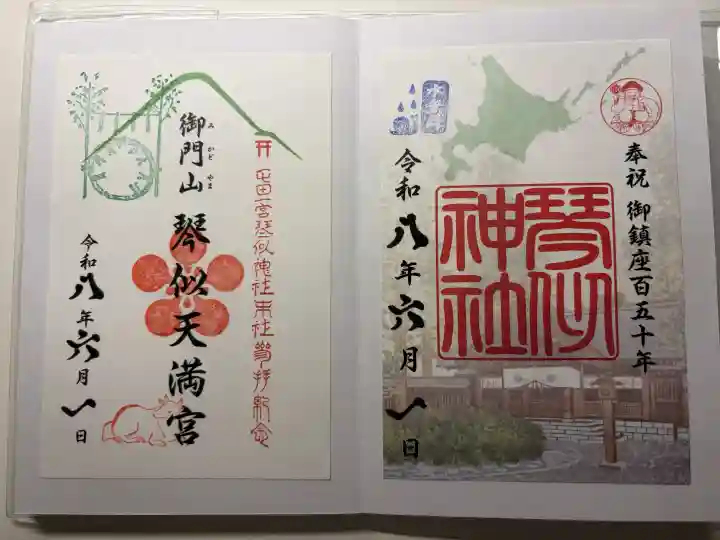 奉祝 御鎮座百五十年
琴似
神社
水無月
令和八年六月一日
屯田宮琴似神社末社參拝紀念
みかどやま
御門山 琴似天満宮
令和八年六月一日